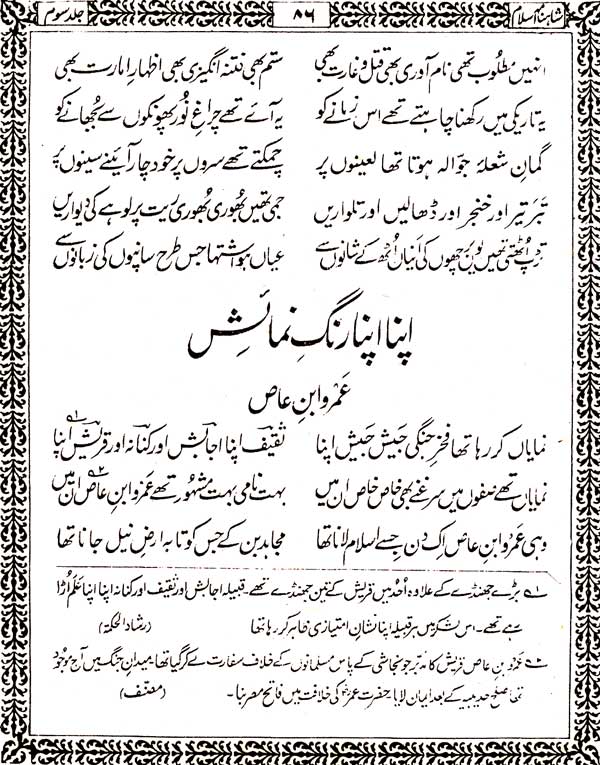 شاہنامہ اسلام ۸۶ جلد سوم
انہیں مطلوب تھی نام آوری بھی قتل و غارت بھی ستم بھی فتنہ انگیزی بھی اظہارِ امارت بھی
یہ تاریکی میں رکھنا چاہتے تھے اس زمانے کو یہ آئے تھے چراغِ نُور پھونکوں سے بُجھانے کو
گمانِ شعلۂ جوّالہ ہوتا تھا لعینوں پر چمکتے تھے سروں پر خود چار آئینے سینوں پر
تبر تیر اور خنجر اور ڈھالیں اور تلواریں جمی تھیں بُھوری بُھوری ریت پر لوہے کی دیواریں
تڑپ اُٹھتی تھیں یوں برچھوں کی اَنیاں اُٹھ کے شانوں سے عیاں ہو اشتہا جس طرح سانپوں کی زبانوں سے
اپنا اپنا رنگِ نمائش
عمرو ابنِ عاص
نمایاں کر رہا تھا فخرِ جنگی جیش جیش اپنا ثقیف اپنا احابیش اور کنانہ اور قریش اپنا ؎۱
نمایاں تھے صفوں میں سرغنے بھی خاص خاص ان میں بہت نامی بہت مشہور تھے عمرو ابنِ عاص ان میں ؎۲
وہی عمرو ابنِ عاص اِک دن جسے اسلام لانا تھا مجاہد بن کے جس کو تا بہ ارضِ نیل جانا تھا
؎۱ بڑے جھنڈے کے علاوہ اُحد میں قریش کے تین جھنڈے تھے۔ قبیلہ احابیش اور ثقیف اور کنانہ اپنا اپنا عَلَم اُڑا
رہے تھے۔ اس لشکر میں ہر قبیلہ اپنا نشانِ امتیازی ظاہر کر رہا تھا (رشاد الحکمۃ)
؎۲ عمرو بن عاص قریش کا مدبّر جو نجاشی کے پاس مسلمانوں کے خلاف سفارت لے کر گیا تھا۔ میدانِ جنگ میں آج موجود
تھا صلح حدیبیہ کے بعد ایمان لایا۔ حضرت عمرؓ کی خلافت میں فاتح مصر بنا۔ (مصنّف)